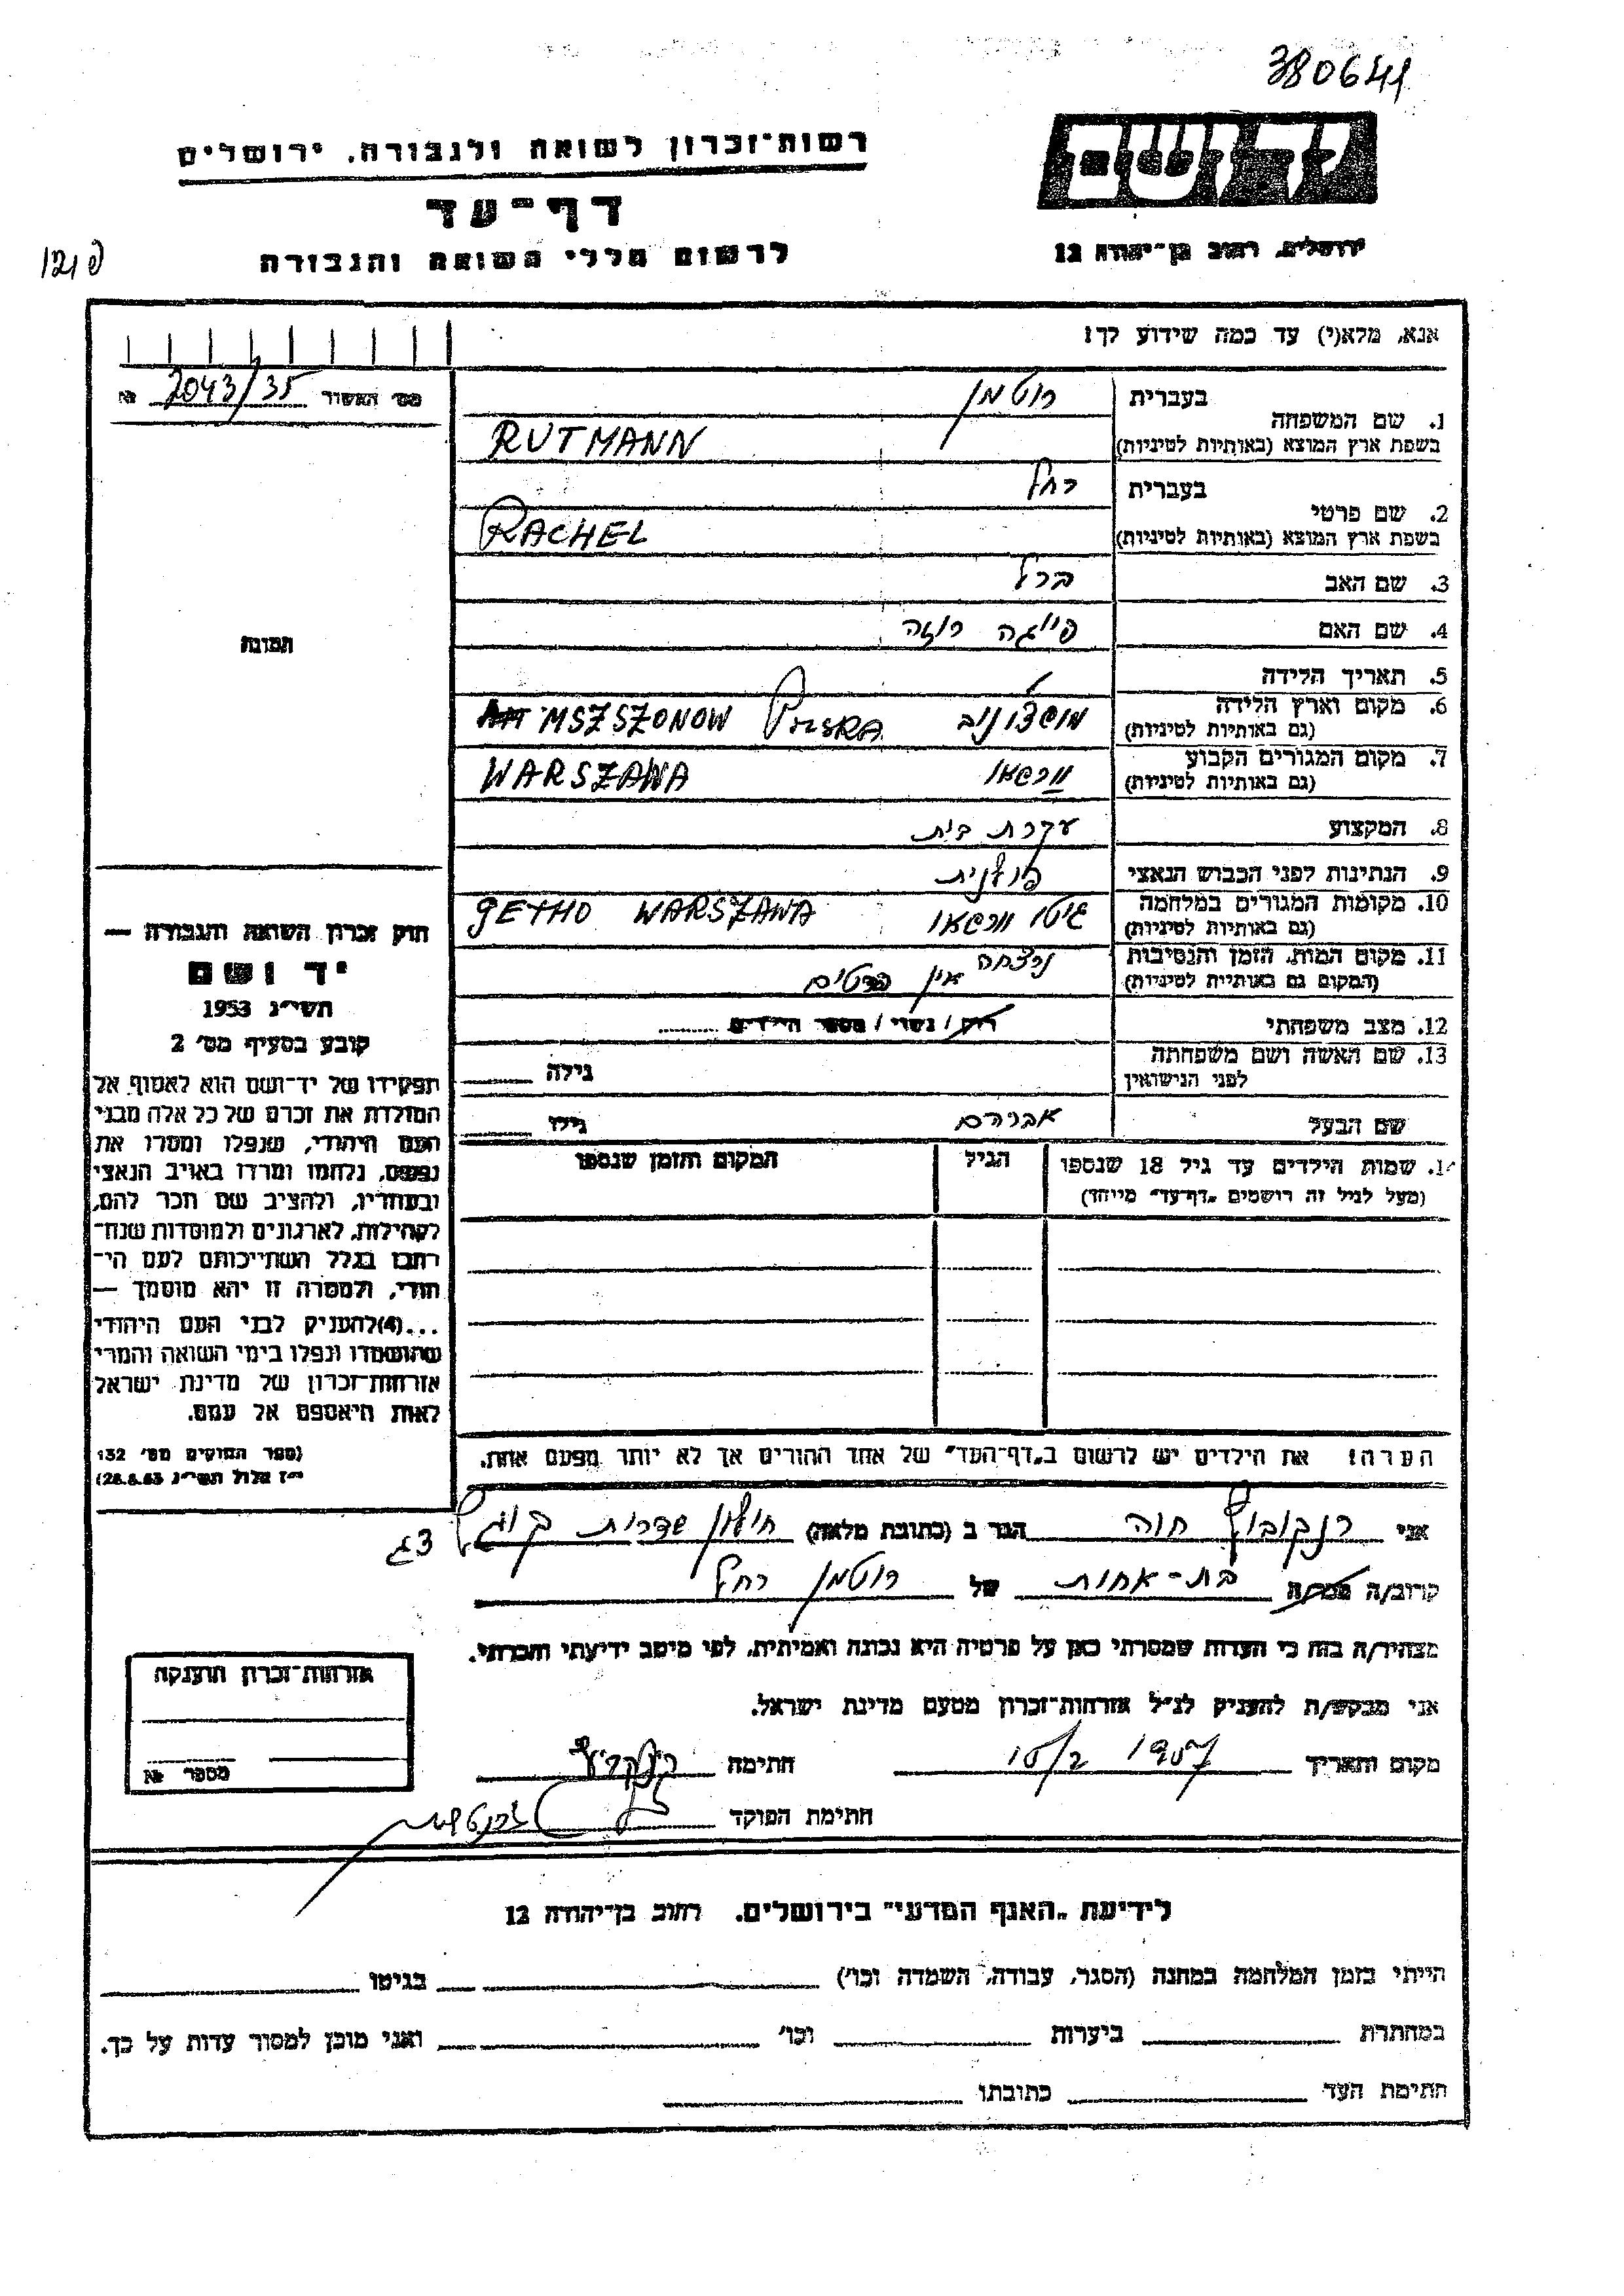 380641
רשות־זכרון לשואה ולגבורה, ירושלים
יד ושם
דף־עד
לרשום חללי השואה והגבורה
ירושלים, רחוב בן־יהודה 12
אנא, מלא(י) עד כמה שידוע לך!
מס׳ האשור 2043/35 №
1. שם המשפחה
בעברית רוטמן
בשפת ארץ המוצא (באותיות לטיניות) RUTMANN
2. שם פרטי
בעברית רחל
בשפת ארץ המוצא (באותיות לטיניות) RACHEL
3. שם האב ברל
4. שם האם פייגה רוזה
תמונה
5. תאריך הלידה
6. מקום וארץ הלידה
(גם באותיות לטיניות) MSZSZONOW POLSKA
7. מקום המגורים הקבוע
(גם באותיות לטיניות) וורשאו WARSZAWA
8. המקצוע עקרת בית
9. הנתינות לפני הכבוש הנאצי פולנית
10. מקומות המגורים במלחמה
(גם באותיות לטיניות) גיטו וורשאו GETHO WARSZAWA
11. מקום המות, הזמן והנסיבות
(המקום גם באותיות לטיניות) נרצחה אין פרטים
12. מצב משפחתי רווק / נשוי / מספר הילדים
13. שם האשה ושם משפחתה
לפני הנישואין גילה
שם הבעל אברהם גילו
14. שמות הילדים עד גיל 18 שנספו הגיל המקום והזמן שנספו
(מעל לגיל זה רושמים „דף־עד” מיוחד)
חוק זכרון השואה והגבורה —
יד ושם
תשי״ג 1953
קובע בסעיף מס׳ 2
תפקידו של יד־ושם הוא לאסוף אל
המולדת את זכרם של כל אלה מבני
העם היהודי, שנפלו ומסרו את
נפשם, נלחמו ומרדו באויב הנאצי
ובעוזריו, ולהציב שם וזכר להם,
לקהילות, לארגונים ולמוסדות שנח־
רבו בגלל השתייכותם לעם הי־
הודי, ולמטרה זו יהא מוסמך —
...(4)להעניק לבני העם היהודי
שהושמדו ונפלו בימי השואה והמרי
אזרחות־זכרון של מדינת ישראל
לאות היאספם אל עמם.
(ספר החוקים מס׳ 132
י״ז אלול תשי״ג 28.8.53)
הערה! את הילדים יש לרשום ב„דף־העד” של אחד ההורים אך לא יותר מפעם אחת.
אני חוה הגר ב (כתובת מלאה) חולון שדרות
קרוב/ה מכר/ה בת-אחות של רוטמן רחל
מצהיר/ה בזה כי העדות שמסרתי כאן על פרטיה היא נכונה ואמיתית, לפי מיטב ידיעתי והכרתי.
אני מבקש/ת להעניק לנ״ל אזרחות־זכרון מטעם מדינת ישראל.
מקום ותאריך 10/2 1957 חתימה
חתימת הפוקד
אזרחות־זכרון הוענקה
מספר №
לידיעת „האגף המדעי” בירושלים, רחוב בן־יהודה 12
הייתי בזמן המלחמה במחנה (הסגר, עבודה, השמדה וכו׳) בגיטו
במחתרת ביערות וכו׳ ואני מוכן למסור עדות על כך.
חתימת העד כתובתו